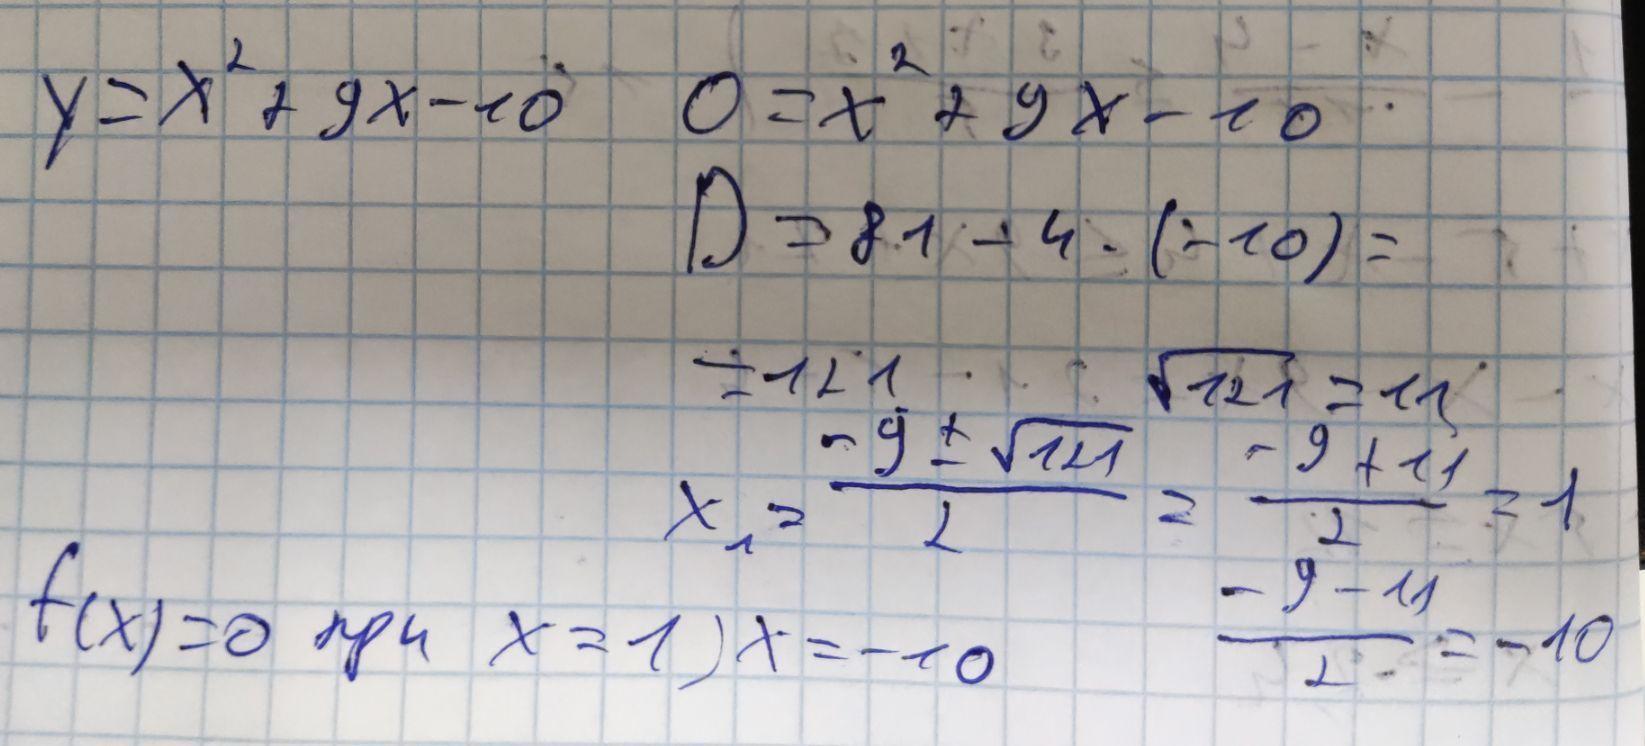 y = x² + 9x - 10    0 = x² + 9x - 10
D = 81 - 4 · (-10) =
= 121    √121 = 11
x₁ = (-9 ± √121) / 2 = (-9 + 11) / 2 = 1
(-9 - 11) / 2 = -10
f(x) = 0 при x = 1, x = -10